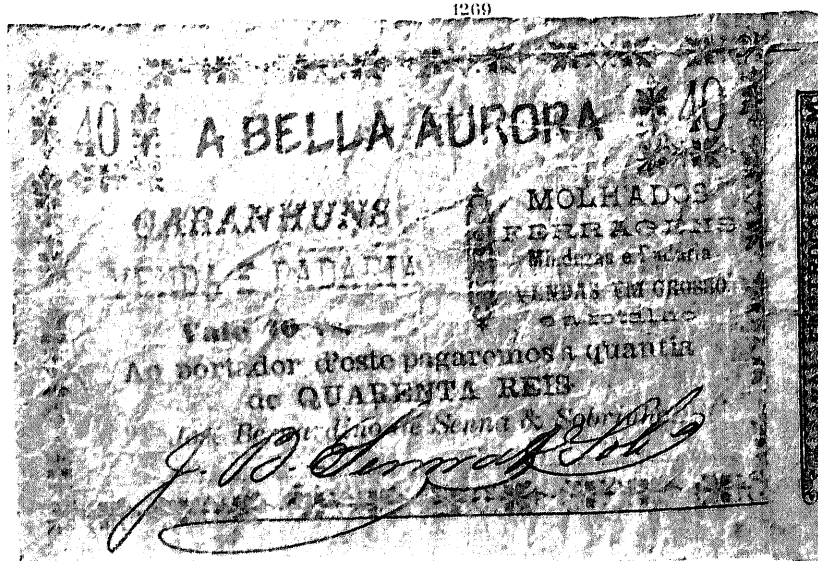 1269
40 A BELLA AURORA 40
GARANHUNS
VENDA E PADARIA
MOLHADOS
FERRAGENS
Miudezas e Padaria
VENDAS EM GROSSO
e a retalho
Vale
Ao portador d'este pagaremos a quantia
de QUARENTA REIS
Bernardino de Senna & Sobrinho
J. B. Senna & Sob